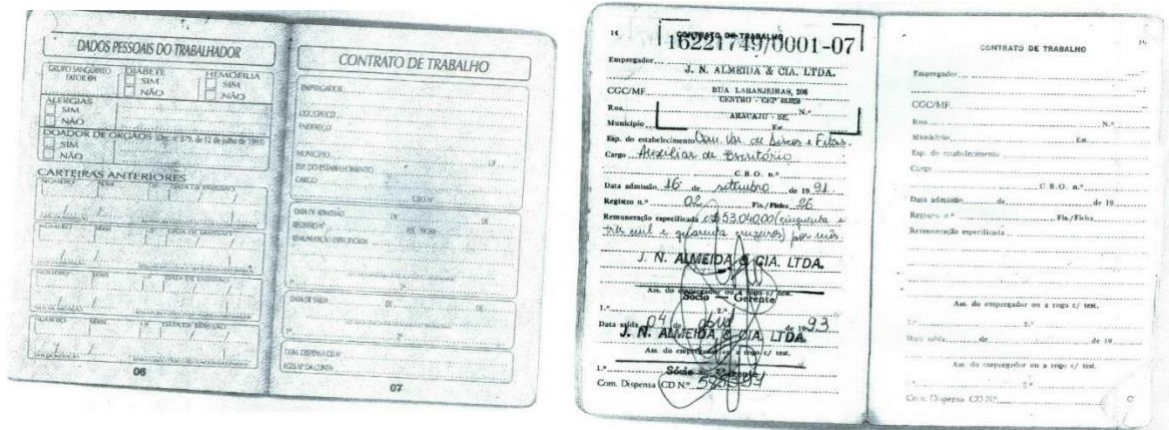 DADOS PESSOAIS DO TRABALHADOR
GRUPO SANGUÍNEO
FATOR RH
DIABETE
SIM
NÃO
HEMOFILIA
SIM
NÃO
ALERGIAS
SIM
NÃO
DOADOR DE ÓRGÃOS
SIM
NÃO
CARTEIRAS ANTERIORES
NÚMERO SÉRIE UF DATA DE EMISSÃO
NÚMERO SÉRIE UF DATA DE EMISSÃO
NÚMERO SÉRIE UF DATA DE EMISSÃO
NÚMERO SÉRIE UF DATA DE EMISSÃO
06
CONTRATO DE TRABALHO
EMPREGADOR
ENDEREÇO
MUNICÍPIO UF
ESP. DO ESTABELECIMENTO
CARGO
CBO Nº
DATA DE ADMISSÃO DE DE
REGISTRO Nº FLS./FICHA
REMUNERAÇÃO ESPECIFICADA
DATA DE SAÍDA DE DE
COM. DISPENSA CD Nº
07
14
CONTRATO DE TRABALHO
16221749/0001-07
Empregador
J. N. ALMEIDA & CIA. LTDA.
CGC/MF
RUA LARANJEIRAS, 206
CENTRO - CEP
Rua N.º
ARACAJU - SE.
Município Est.
Esp. do estabelecimento Com. Var. de Discos e Fitas.
Cargo Auxiliar de Escritório
C.B.O. n.º
Data admissão 16 de setembro de 1991
Registro n.º 02 Fls./Ficha 26
Remuneração especificada cr$ 53.040,00 (cinquenta e
três mil e quarenta cruzeiros) por mês
J. N. ALMEIDA & CIA. LTDA.
Ass. do empregador ou a rogo c/ test.
Sócio - Gerente
1.º 2.º
Data saída 04 de abril de 1993
J. N. ALMEIDA & CIA. LTDA.
Ass. do empregador ou a rogo c/ test.
1.º Sócio - Gerente
Com. Dispensa (CD N.º
CONTRATO DE TRABALHO
Empregador
CGC/MF
Rua N.º
Município Est.
Esp. do estabelecimento
Cargo
C.B.O. n.º
Data admissão de de 19
Registro n.º Fls./Ficha
Remuneração especificada
Ass. do empregador ou a rogo c/ test.
1.º 2.º
Data saída de de 19
Ass. do empregador ou a rogo c/ test.
1.º 2.º
Com. Dispensa CD N.º